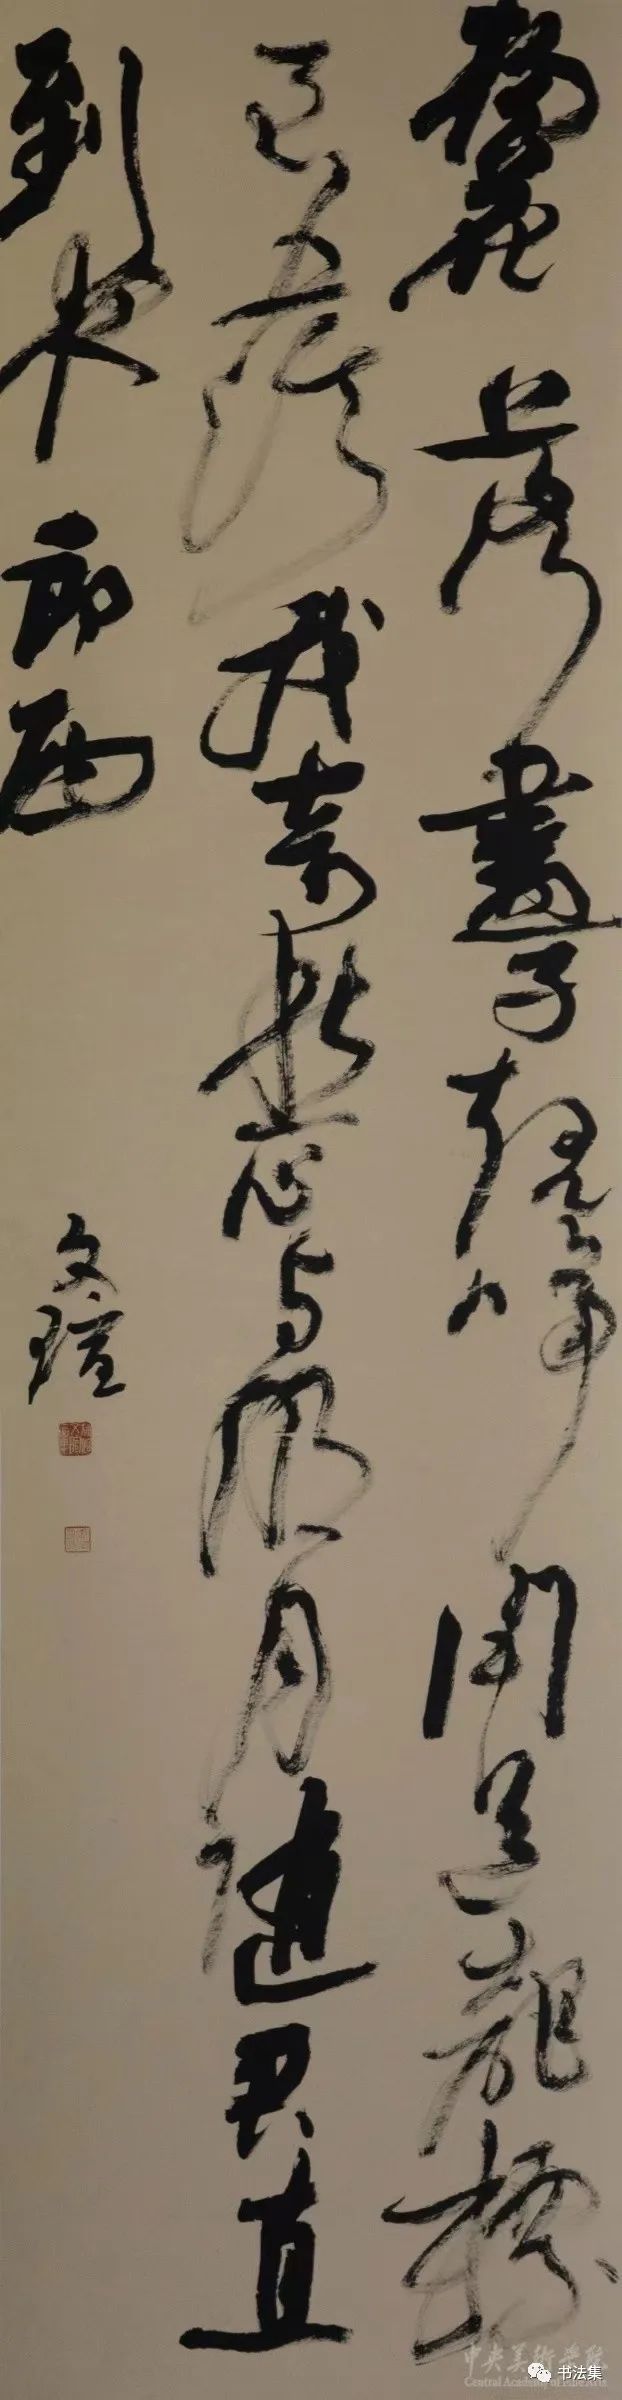 楊花落盡子規啼聞道龍標
過五溪我寄愁心与明月隨君直
到夜郎西
文瑄
中央美術學院
Central Academy of Fine Arts
书法集